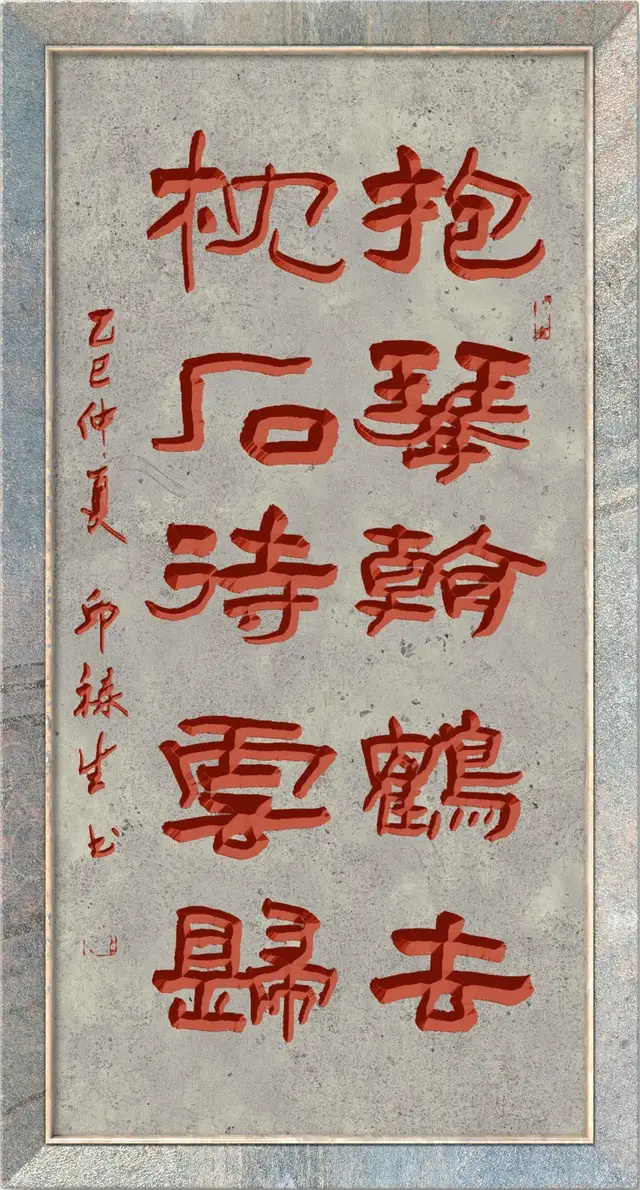 抱琴看鶴去
枕石待雲歸
乙巳仲夏 邱禄生书